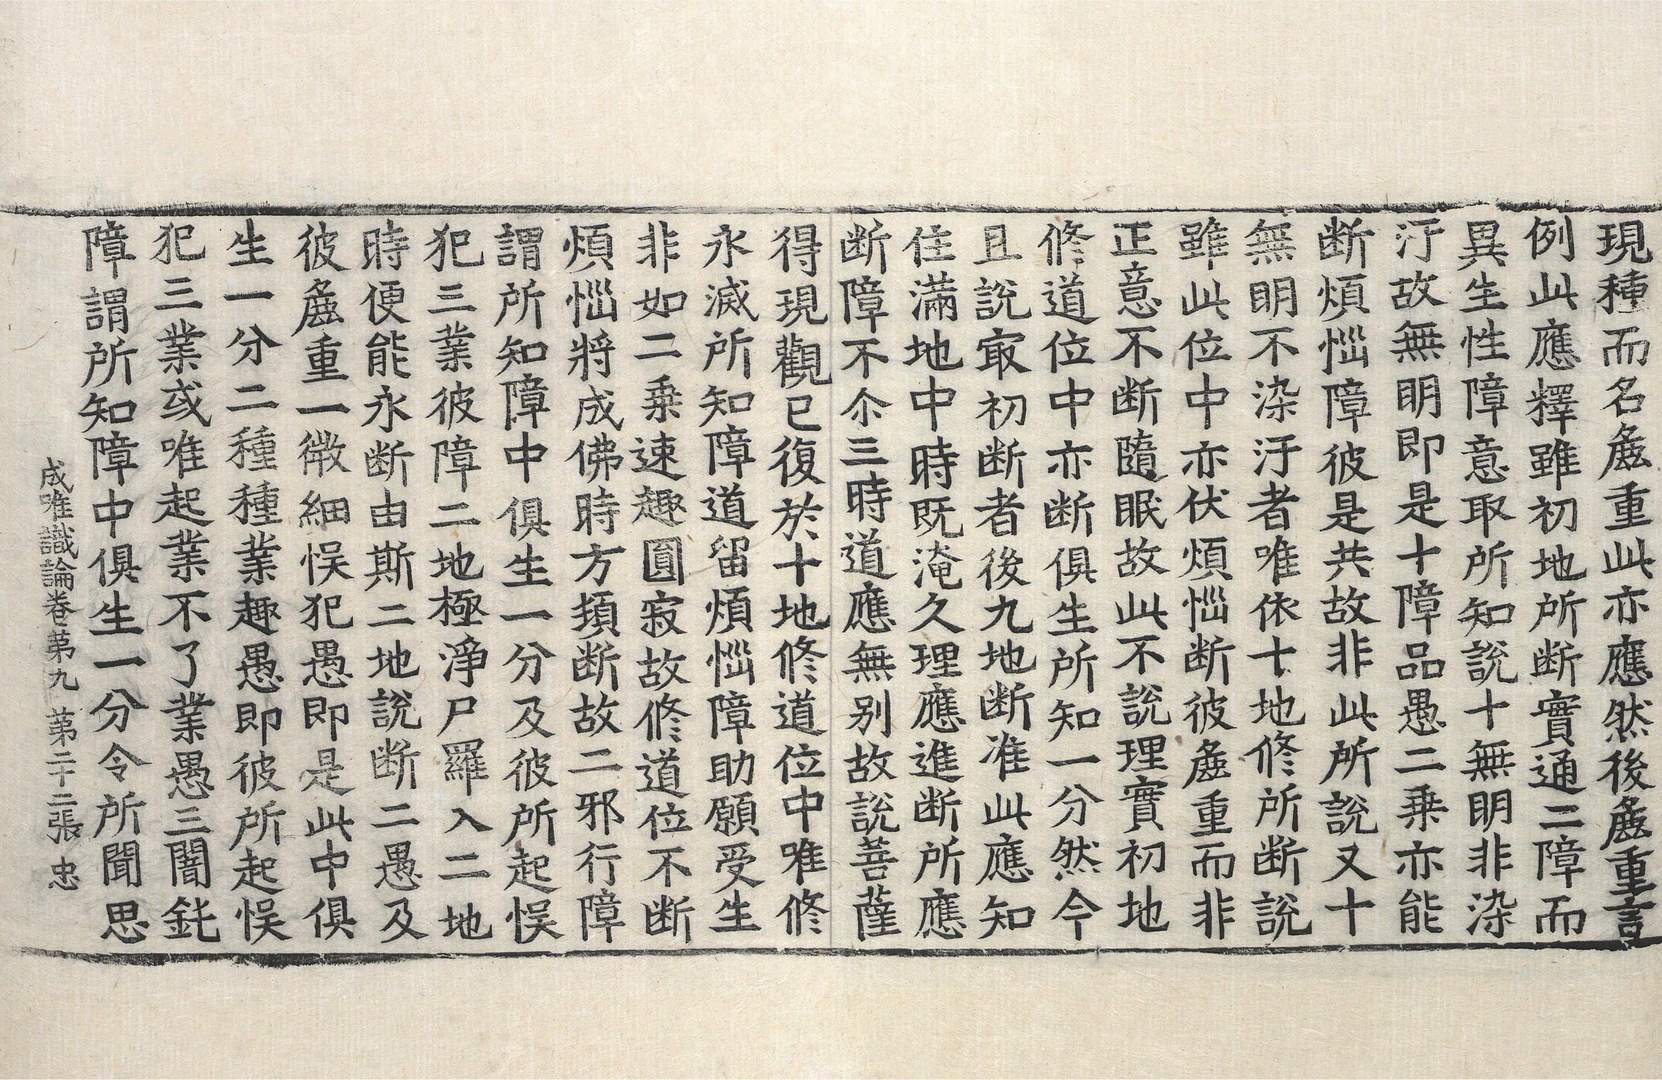 現種而名麁重此亦應然後麁重言
例此應釋雖初地所斷實通二障而
異生性障意取所知說十無明非染
汙故無明即是十障品愚二乗亦能
断煩惱障彼是共故非此所說又十
無明不染汙者唯依十地修所断說
雖此位中亦伏煩惱断彼麁重而非
正意不断隨眠故此不說理實初地
修道位中亦断俱生所知一分然今
且說㝡初断者後九地断准此應知
住滿地中時旣淹久理應進断所應
断障不尒三時道應無別故說菩薩
得現觀已復於十地修道位中唯修
永滅所知障道留煩惱障助願受生
非如二乗速趣圓寂故修道位不断
煩惱將成佛時方頓断故二邪行障
謂所知障中俱生一分及彼所起悞
犯三業彼障二地極淨尸羅入二地
時便能永断由斯二地說断二愚及
彼麁重一微細悞犯愚即是此中俱
生一分二種種業趣愚即彼所起悞
犯三業或唯起業不了業愚三闇鈍
障謂所知障中俱生一分令所聞思
成唯識論卷第九 第二十二張 忠